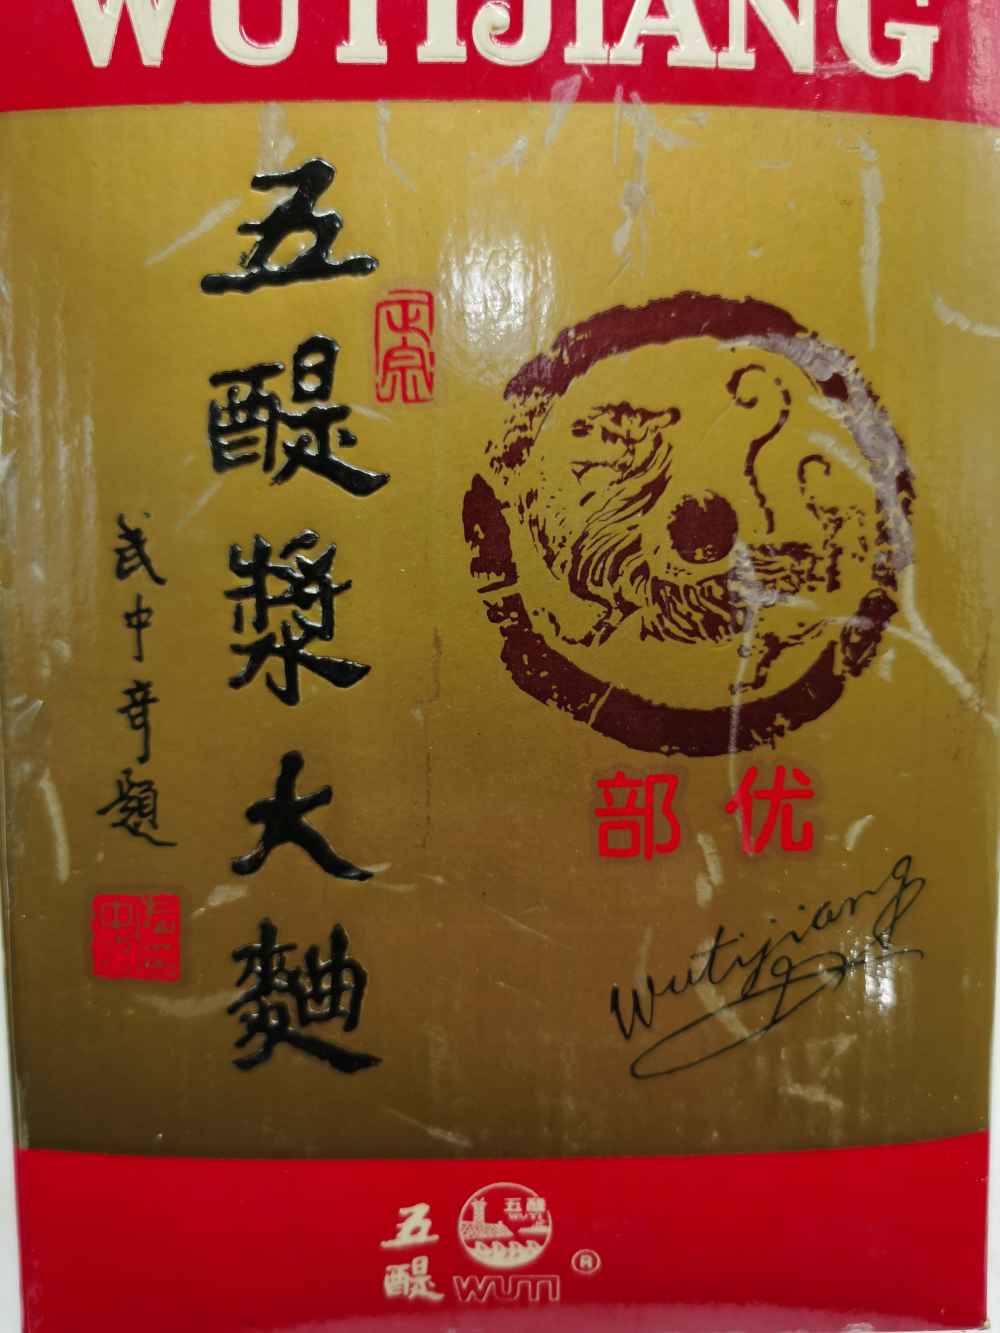 WUTIJIANG
五醍漿大麯
正宗
武中奇題
部优
Wutijiang
五醍
五醍
WUTI
WUTI
®